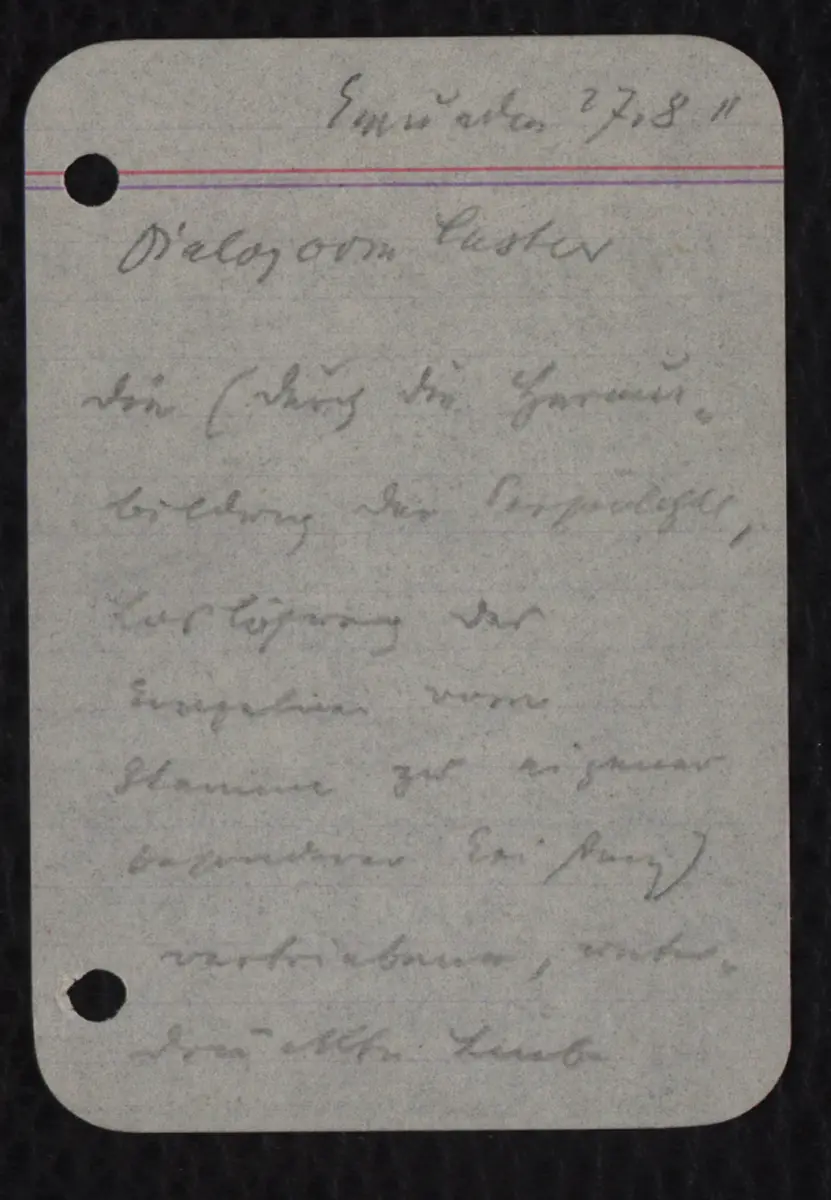 Gmunden 27.8 11
Dialog vom Laster
die (durch die Heraus-
bildung der Persönlichk,
Loslösung des
Einzelnen vom
Stamme zu eigener
besonderer Leistung)
vertriebene, unter-
drückte Liebe